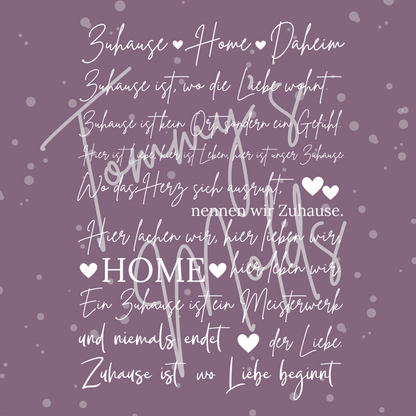 Zuhause ♥ Home ♥ Daheim
Zuhause ist, wo die Liebe wohnt.
Zuhause ist kein Ort, sondern ein Gefühl.
Hier ist Liebe, hier ist Leben, hier ist unser Zuhause
Wo das Herz sich ausruht,
nennen wir Zuhause.
Hier lachen wir, hier lieben wir
♥HOME♥ hier leben wir.
Ein Zuhause ist ein Meisterwerk
und niemals endet ♥ der Liebe.
Zuhause ist wo Liebe beginnt
Tommy's Molds